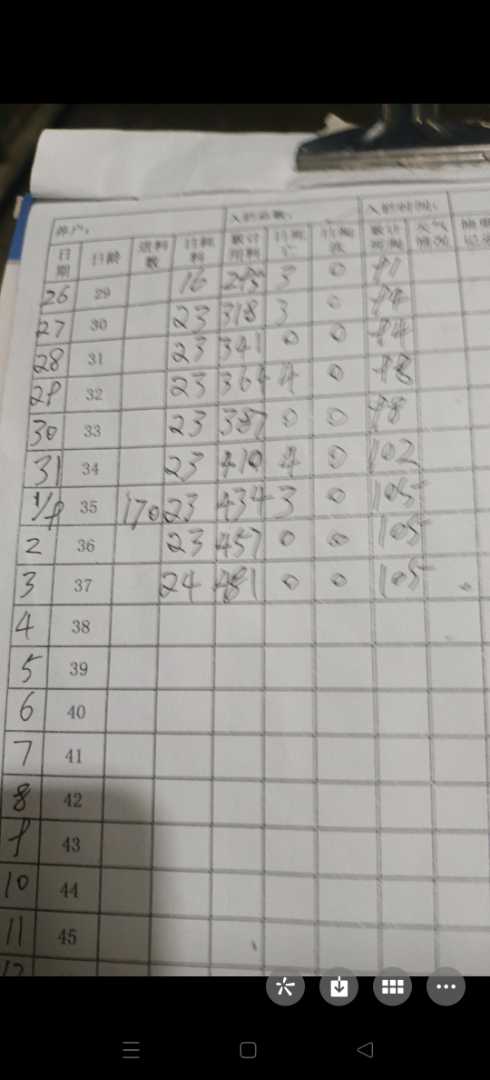 养户： 入舍总数： 入舍时间：
日期 日龄 进料数 日耗料 累计用料 日死亡 日淘汰 累计死淘 天气情况
26 29 16 295 3 0 91
27 30 23 318 3 0 94
28 31 23 341 0 0 94
29 32 23 364 4 0 98
30 33 23 387 0 0 98
31 34 23 410 4 0 102
1/9 35 170 23 434 3 0 105
2 36 23 457 0 0 105
3 37 24 481 0 0 105
4 38
5 39
6 40
7 41
8 42
9 43
10 44
11 45
12